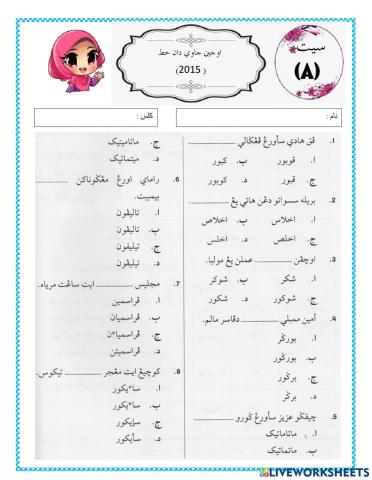 اوجين جاوي دان خط
(2015)
سيت
(A)
نام :
كلس :
1. ڤق هادي سأورڠ ڤڠݢالي ________.
ا. قوبور ب. كبور
ج. قبور د. كوبور
2. بريله سسواتو دڠن هاتي يڠ ________.
ا. اخلاس ب. اخلاص
ج. اخلص د. اخلس
3. اوچڤن ________ عملن يڠ موليا.
ا. شكر ب. شوكر
ج. شوكور د. شكور
4. أمين ممبلي ________ دڤاسر مالم.
ا. بورݢر
ب. بورݢور
ج. برݢور
د. برݢر
5. چيقݢو عزيز سأورڠ ݢورو ________
ا. ماتاماتيک
ب. ماتماتيک
ج. ماتاميتيک
د. ميتماتيک
6. راماي اورڠ مڠݢوناكن ________
بيمبيت.
ا. تاليڤون
ب. تاليڤون
ج. تيليفون
د. تيليڤون
7. مجليس ________ ايت ساڠت مرياه.
ا. ڤراسمين
ب. ڤراسميان
ج. ڤراسمياءن
د. ڤراسميئن
8. كوچيڠ ايت مڠجر ________ تيكوس.
ا. ساءيكور
ب. ساءيكور
ج. سإيكور
د. سأيكور
LIVEWORKSHEETS